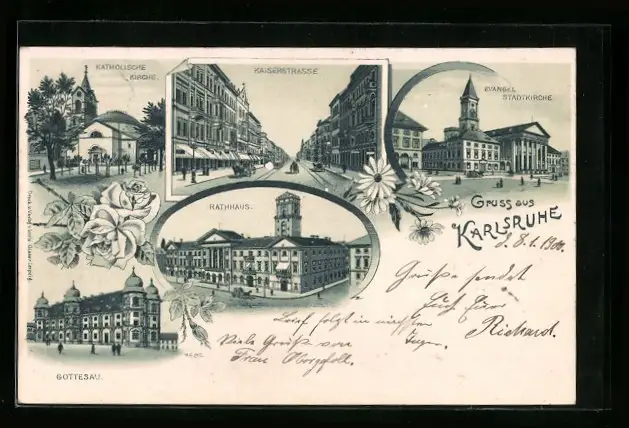 KATHOLISCHE
KIRCHE.
KAISERSTRASSE
EVANGEL.
STADTKIRCHE.
RATHHAUS.
GRUSS AUS
KARLSRUHE
d. 8. 1. 1900.
Grüße sendet
Richard.
Brief folgt in nächsten
Tagen.
Viele Grüße von
Frau
GOTTESAU.